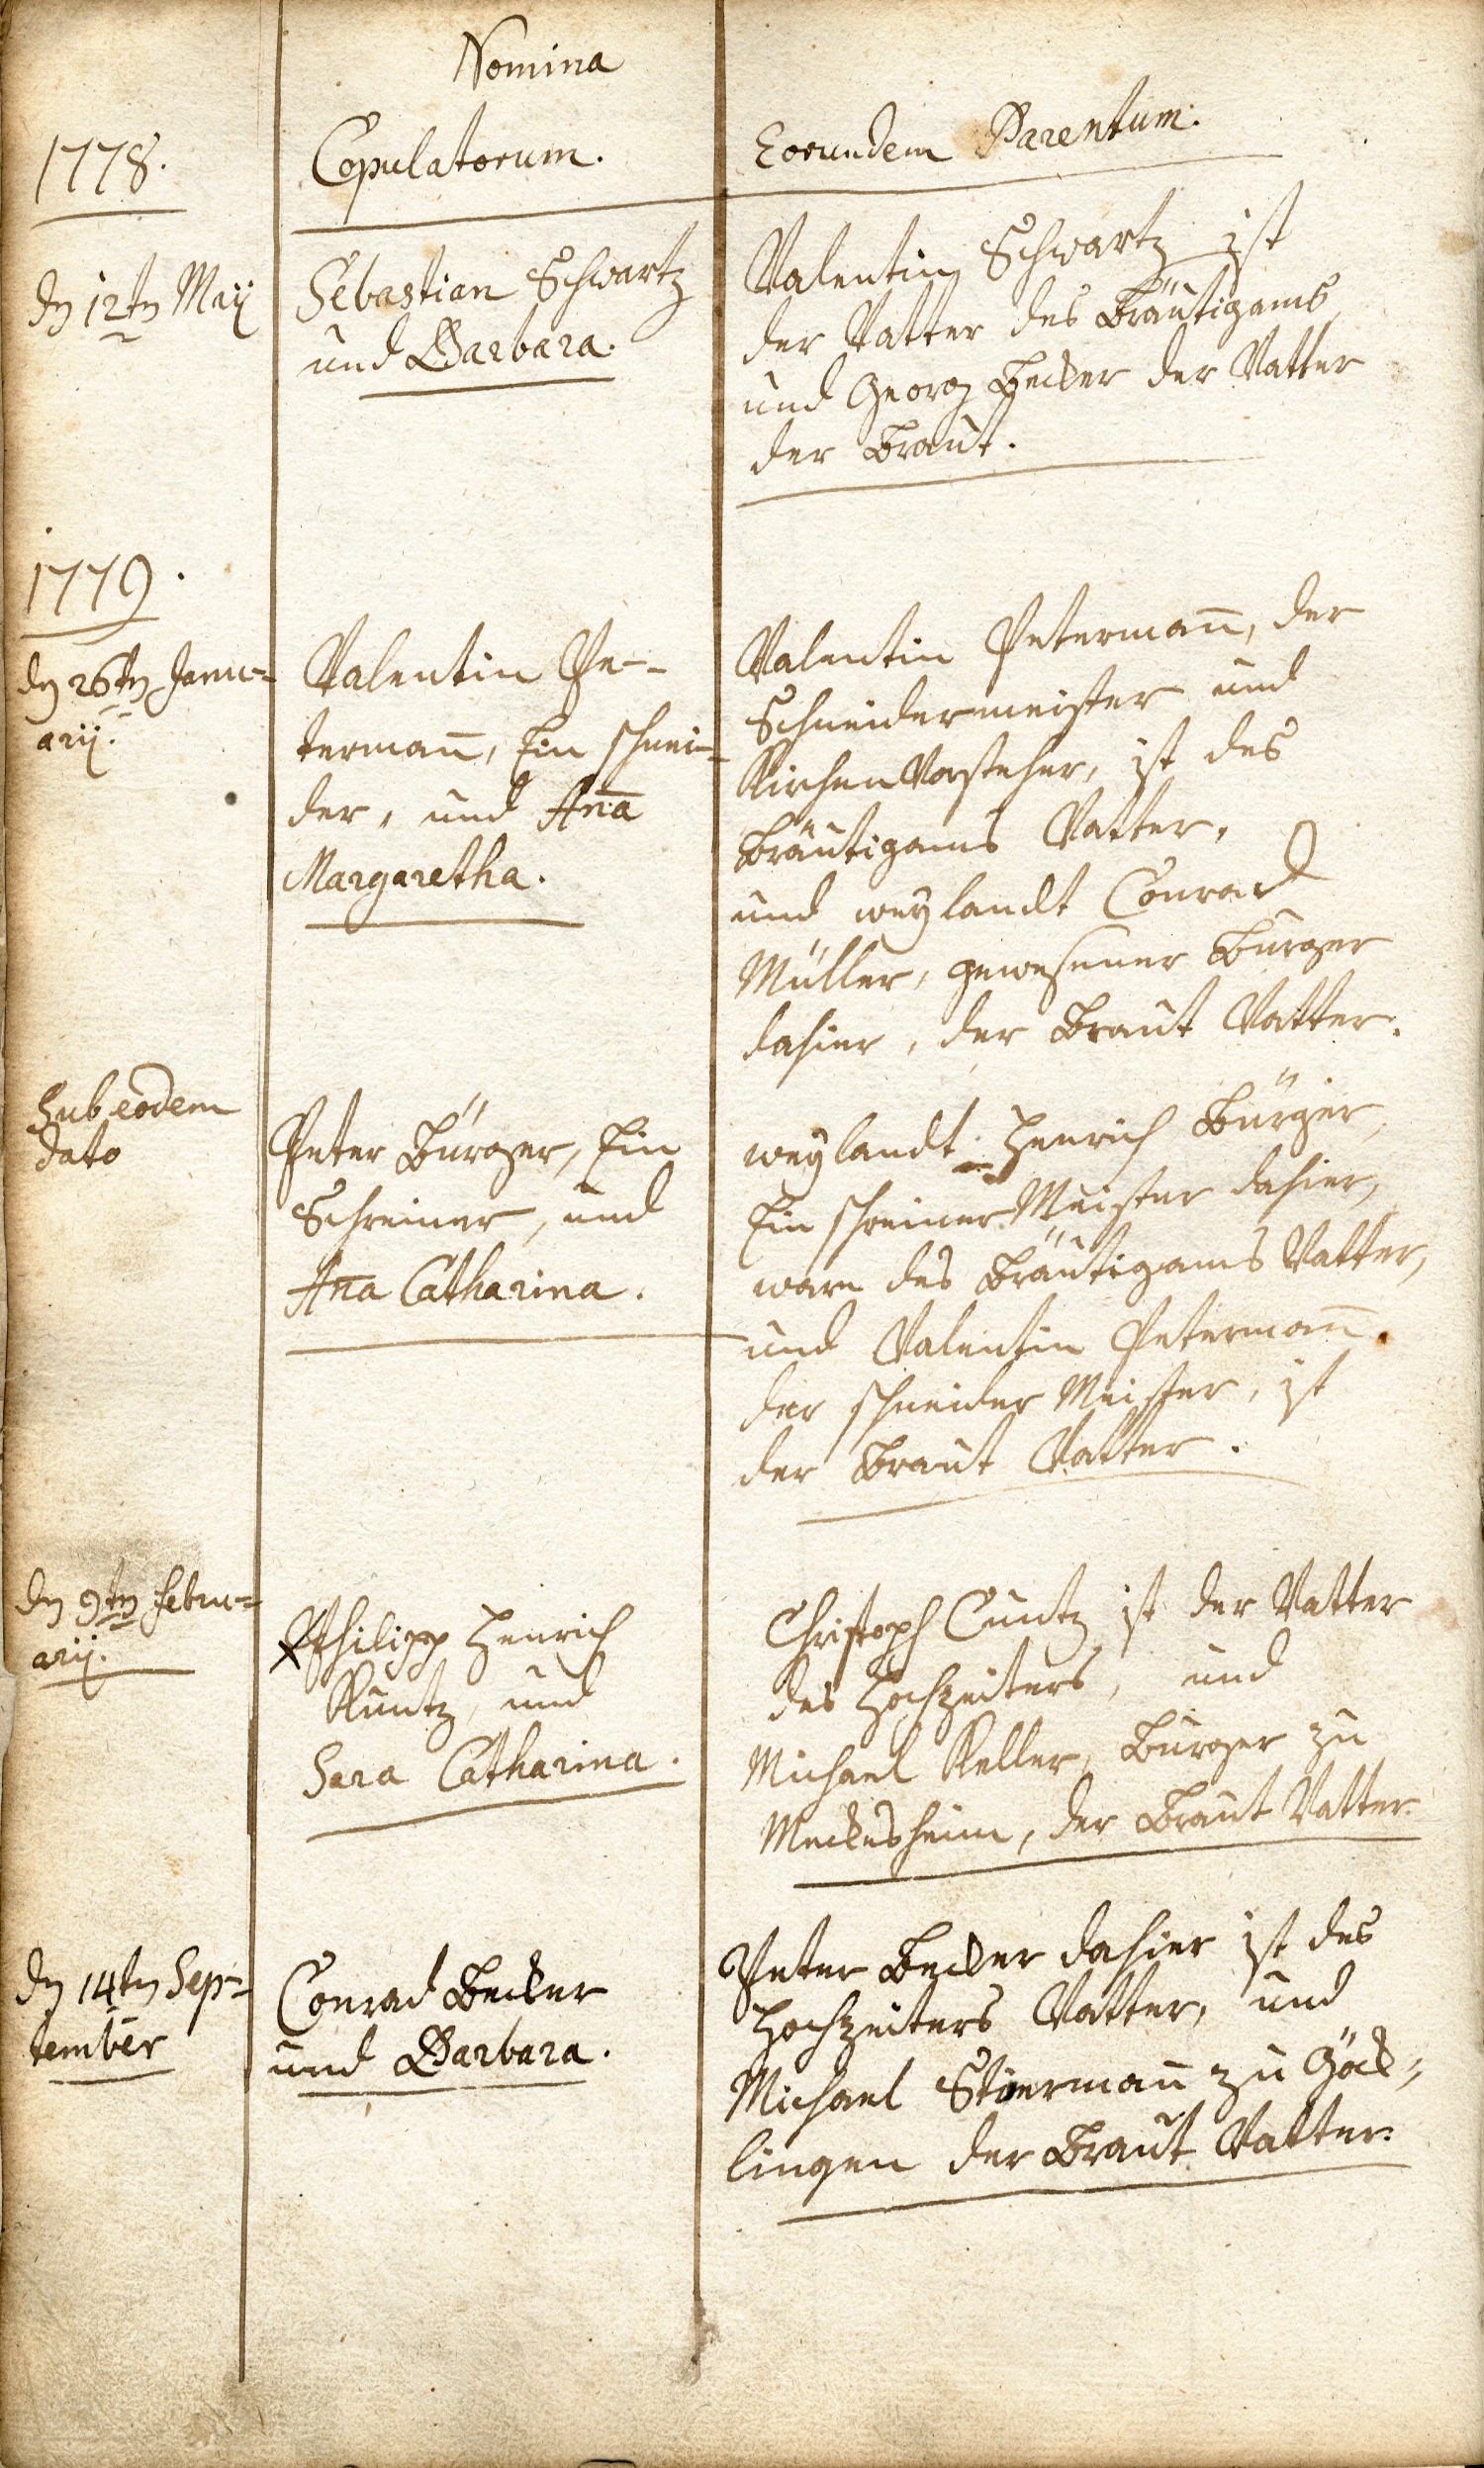 Nomina
1778.
Copulatorum.
Eorundem Parentum.
dn 12tn Maij
Sebastian Schwartz
und Barbara.
Valentin Schwartz ist
der Vatter des Bräutigams
und Georg Becker der Vatter
der Braut.
1779.
dn 26tn Janu=
arij.
Valentin Pe-
terman̄, Ein schnei-
der, und An̄a
Margaretha.
Valentin Peterman̄, der
Schneidermeister und
KirchenVorsteher, ist des
Bräutigams Vatter,
und weylandt Conrad
Müller, gewesener Burger
dahier, der Braut Vatter.
Sub eodem
dato
Peter Bürger, Ein
Schreiner, und
An̄a Catharina.
weylandt Henrich Bürger,
Ein schreiner Meister dahier,
ware des Bräutigams Vatter,
und Valentin Peterman̄.
der schneider Meister, ist
der Braut Vatter.
dn 9tn Febru=
arij.
Philipp Henrich
Kuntz, und
Sara Catharina.
Christoph Cuntz ist der Vatter
des Hochzeiters, und
Michael Keller, Burger zu
Meckesheim, der Braut Vatter.
dn 14tn Sep=
tember
Conrad Becker
und Barbara.
Peter Becker dahier ist des
Hochzeiters Vatter, und
Michael Stierman̄ zu Göck=
lingen der Braut Vatter.